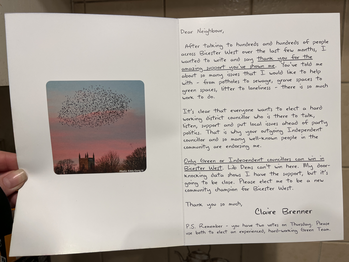 Dear Neighbour,
After talking to hundreds and hundreds of people
across Bicester West over the last few months, I
wanted to write and say thank you for the
amazing support you've shown me. You've told me
about so many issues that I would like to help
with - from potholes to sewage, grave spaces to
green spaces, litter to loneliness - there is so much
work to do.
It's clear that everyone wants to elect a hard
working district councillor who is there to talk,
listen, support and put local issues ahead of party
politics. That is why your outgoing Independent
councillor and so many well-known people in the
community are endorsing me.
Only Green or Independent councillors can win in
Bicester West. Lib Dems can't win here. My door-
knocking data shows I have the support, but it's
going to be close. Please elect me to be a new
community champion for Bicester West.
Thank you so much,
Claire Brenner
P.S. Remember - you have two votes on Thursday. Please
use both to elect an experienced, hard-working Green Team.